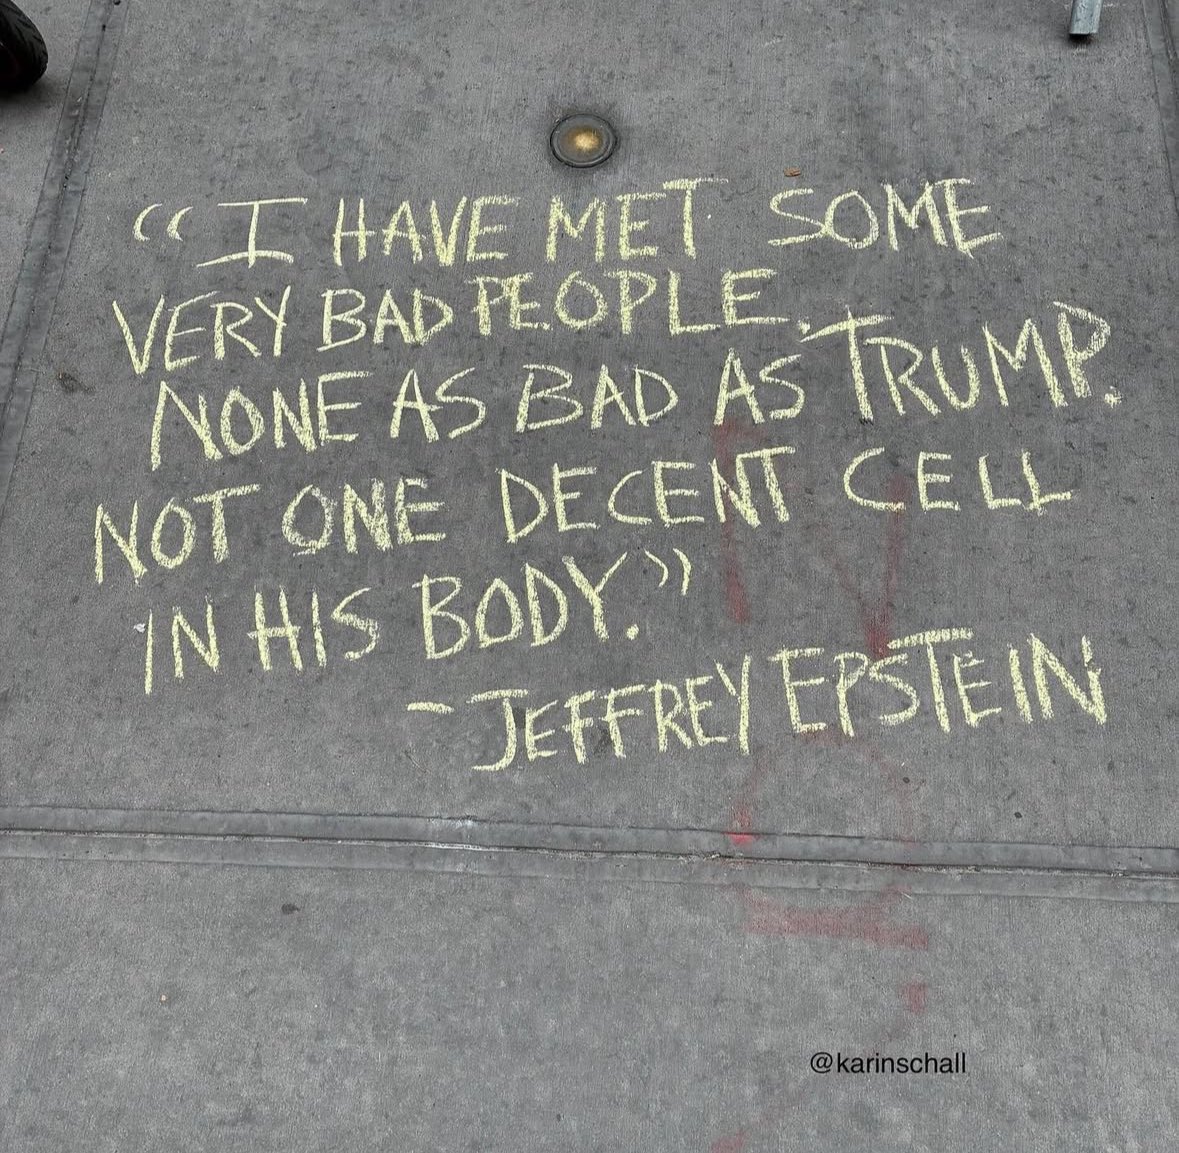 “I HAVE MET SOME
VERY BAD PEOPLE.
NONE AS BAD AS TRUMP.
NOT ONE DECENT CELL
IN HIS BODY.”
- JEFFREY EPSTEIN
@karinschall